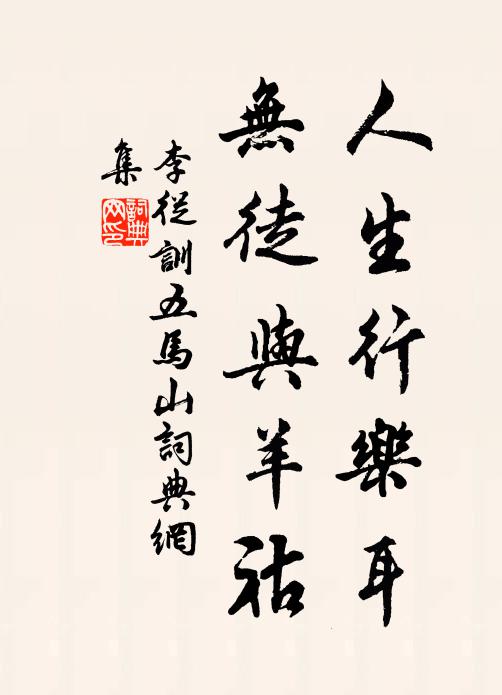 人生行樂耳
無徒與羊祜
李從訓五馬山詞典網
集
詞典
网印